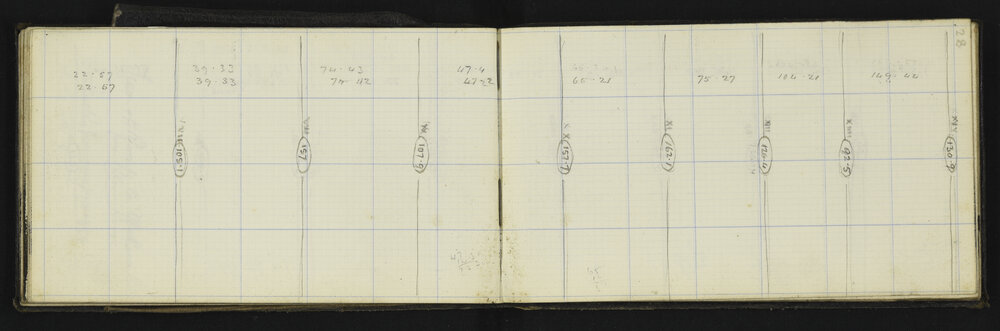 28
22.57
22.57
39.33
39.33
74.43
74.42
47.4
47.22
65.21
75.27
104.21
149.44
(105.1)
(157)
(107.9)
X (157.7)
XI (162.1)
XII (120.4)
XIII (92.5)
XIV (130.9)